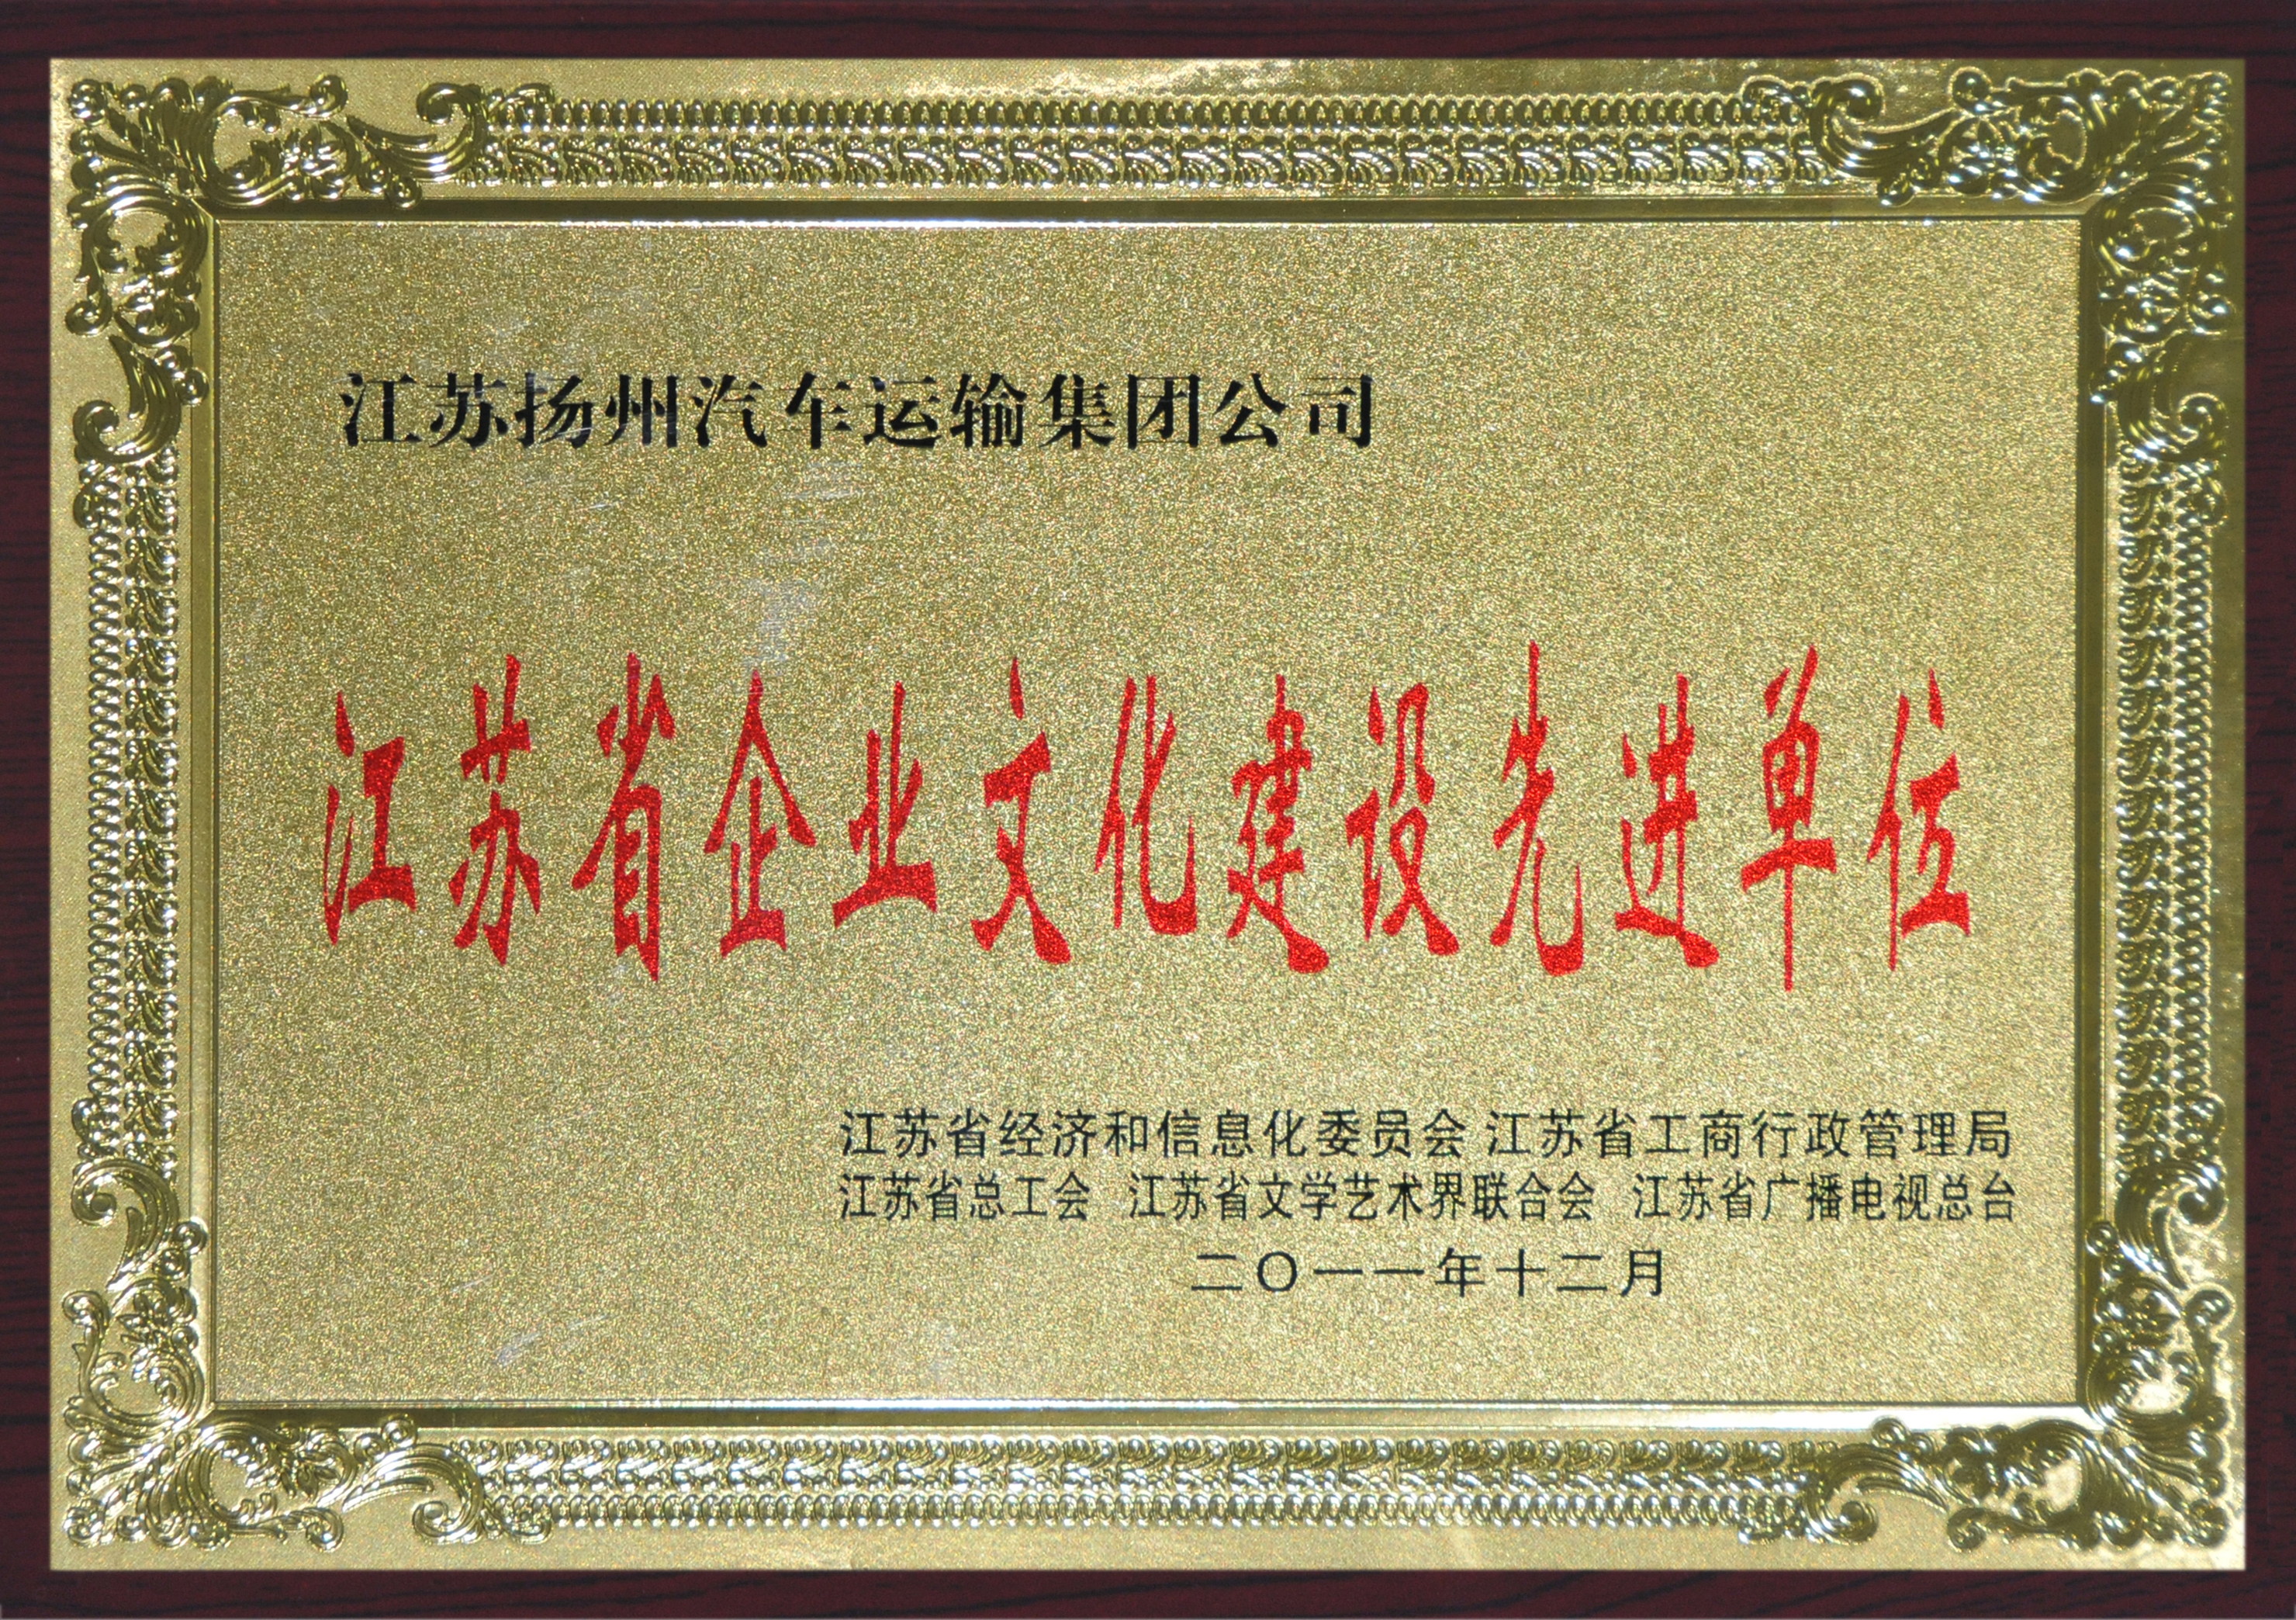 江苏扬州汽车运输集团公司
江苏省企业文化建设先进单位
江苏省经济和信息化委员会 江苏省工商行政管理局
江苏省总工会 江苏省文学艺术界联合会 江苏省广播电视总台
二〇一一年十二月